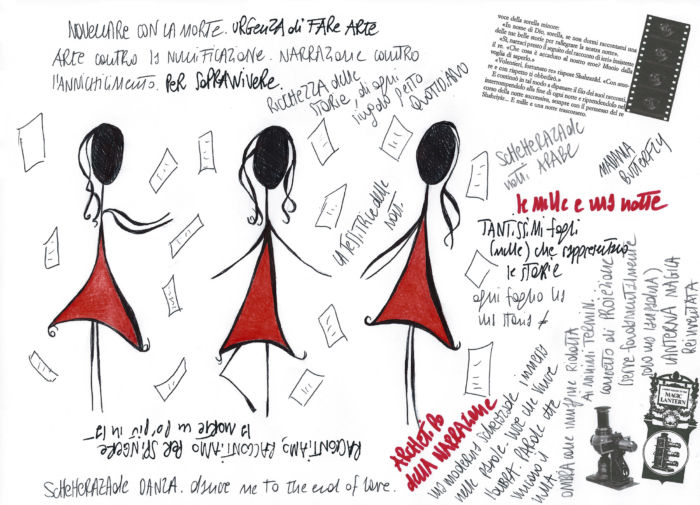 NOVELLARE CON LA MORTE. URGENZA di FARE ARTE
ARTE CONTRO LA NULLIFICAZIONE. NARRAZIONE CONTRO
L'ANNICHILIMENTO. PER SOPRAVVIVERE.
RICCHEZZA delle
STORIE, di ogni
singolo gesto
QUOTIDIANO
voce della sorella minore:
«In nome di Dio, sorella, se non dormi raccontami una
delle tue belle storie per rallegrare la nostra notte».
«Sì, narraci presto il seguito del racconto di ieri» insistette
il re. «Che cosa è accaduto al nostro eroe? Muoio dalla
voglia di saperlo.»
«Volentieri, fortunato re» rispose Shahrazàd. «Con amo-
re e con rispetto ti obbedirò.»
E continuò in tal modo a dipanare il filo dei suoi racconti,
interrompendolo alla fine di ogni notte e riprendendolo nel
corso della notte successiva, sempre con il permesso del re
Shahriyàr... E mille e una notte trascorsero.
SCHEHERAZADE
notti ARABE
MADAMA
BUTTERFLY
le mille e una notte
LA TESSITRICE delle
notti.
TANTISSIMI fogli
(mille) che rappresentano
le storie
ogni foglio ha
una storia
ARCHETIPO
DELLA NARRAZIONE
una moderna Scheherazade immersa
nelle parole. Dove che vive
l'OMBRA. PAROLE che
OMBRA come immagine Ridotta
Ai minimi TERMINI.
concetto di PROIEZIONE
(serve fondamentalmente
solo una lampadina)
LANTERNA MAGICA
Reinventata
MAGIC
LANTERN
RACCONTIAMO, RACCONTIAMO PER SPINGERE
LA MORTE un po' più in là
SCHEHERAZADE DANZA. dance me to the end of love.